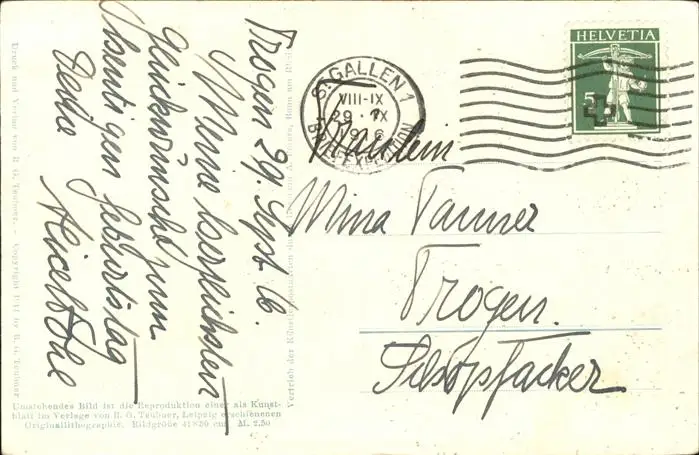 Trogen 29. Sept. 16.
Meine herzlichsten
Glückwünsche zum
heutigen Geburtstag
Deine
Alice Hohl
ST. GALLEN 1
VIII-IX
29. IX
BRIEFEXPEDITION
HELVETIA
5
Fräulein
Mina Tanner
Trogen.
Schopfacker
Druck und Verlag von B. G. Teubner. Copyright 1911 by B. G. Teubner
Vertrieb der Künstlerpostkarten durch
Umstehendes Bild ist die Reproduktion einer als Kunst-
blatt im Verlage von B. G. Teubner, Leipzig erschienenen
Originallithographie. Bildgröße 41×30 cm M. 2.50